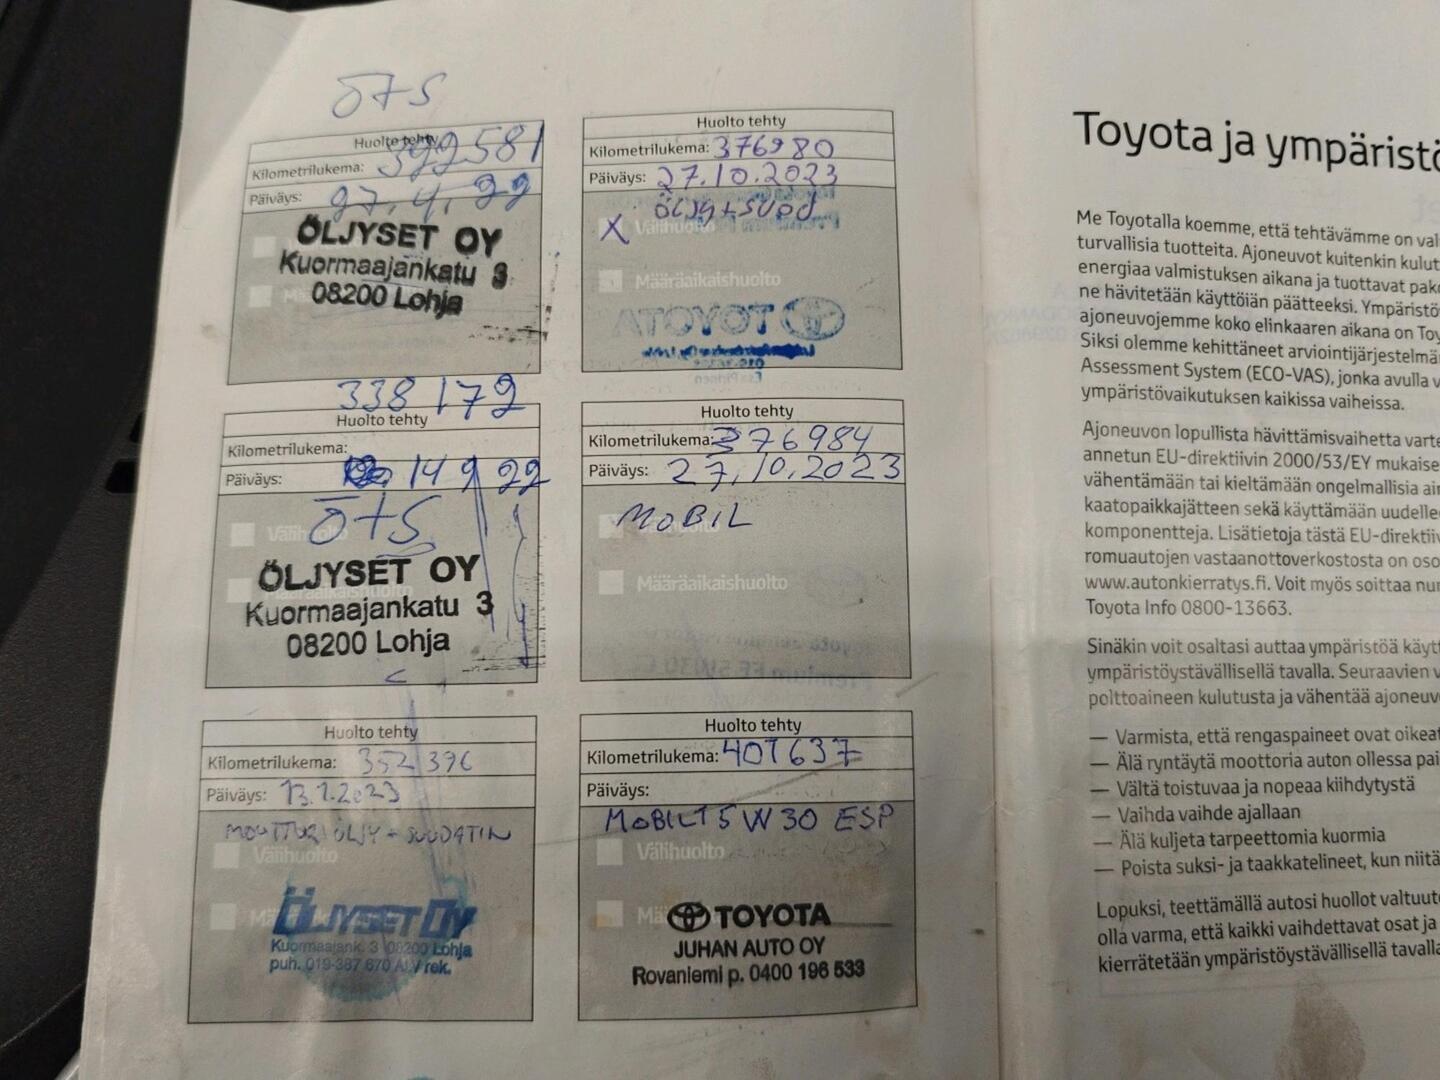 Ö+S
Huolto tehty
Kilometrilukema: 322581
Päiväys: 27.4.22
ÖLJYSET OY
Kuormaajankatu 3
08200 Lohja
338 172
Huolto tehty
Kilometrilukema:
Päiväys: 14 9 22
Ö+S
Välihuolto
Määräaikaishuolto
ÖLJYSET OY
Kuormaajankatu 3
08200 Lohja
Huolto tehty
Kilometrilukema: 352 396
Päiväys: 13.1.2023
MOOTTORI ÖLJY + SUODATIN
Välihuolto
ÖLJYSET OY
Kuormaajank. 3 08200 Lohja
puh. 019-387 670 ALV rek.
Huolto tehty
Kilometrilukema: 376980
Päiväys: 27.10.2023
ÖLJY + SUOD
X Välihuolto
Määräaikaishuolto
TOYOTA
Huolto tehty
Kilometrilukema: 376984
Päiväys: 27.10.2023
MOBIL
Määräaikaishuolto
Huolto tehty
Kilometrilukema: 407637
Päiväys:
MOBIL 5W30 ESP
Välihuolto
TOYOTA
JUHAN AUTO OY
Rovaniemi p. 0400 196 533
Toyota ja ympäristö
Me Toyotalla koemme, että tehtävämme on
turvallisia tuotteita. Ajoneuvot kuitenkin
energiaa valmistuksen aikana ja tuottavat
ne hävitetään käyttöiän päätteeksi.
ajoneuvojemme koko elinkaaren aikana on
Siksi olemme kehittäneet
Assessment System (ECO-VAS), jonka avulla
ympäristövaikutuksen kaikissa vaiheissa.
Ajoneuvon lopullista hävittämisvaihetta
annetun EU-direktiivin 2000/53/EY
vähentämään tai kieltämään ongelmallisia
kaatopaikkajätteen sekä käyttämään
komponentteja. Lisätietoja tästä
romuautojen vastaanottoverkostosta on
www.autonkierratys.fi. Voit myös soittaa
Toyota Info 0800-13663.
Sinäkin voit osaltasi auttaa ympäristöä
ympäristöystävällisellä tavalla. Seuraavien
polttoaineen kulutusta ja vähentää
— Varmista, että rengaspaineet ovat
— Älä ryntäytä moottoria auton ollessa
— Vältä toistuvaa ja nopeaa kiihdytystä
— Vaihda vaihde ajallaan
— Älä kuljeta tarpeettomia kuormia
— Poista suksi- ja taakkatelineet, kun
Lopuksi, teettämällä autosi huollot
olla varma, että kaikki vaihdettavat osat ja
kierrätetään ympäristöystävällisellä